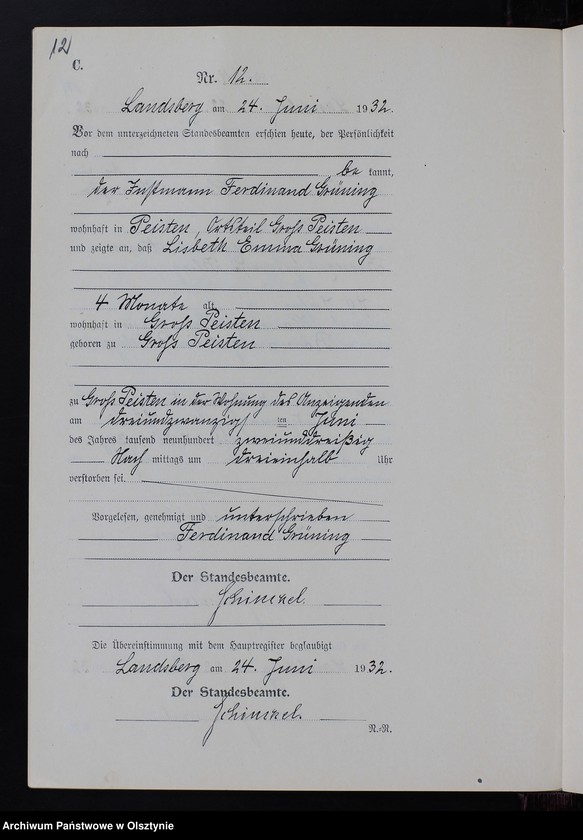 12
C.
Nr. 12.
Landsberg am 24. Juni 1932.
Vor dem unterzeichneten Standesbeamten erschien heute, der Persönlichkeit
nach
be kannt,
der Instmann Ferdinand Grüning
wohnhaft in Peisten, Ortsteil Groß Peisten
und zeigte an, daß Lisbeth Emma Grüning
4 Monate alt
wohnhaft in Groß Peisten
geboren zu Groß Peisten
zu Groß Peisten in der Wohnung des Anzeigenden
am dreiundzwanzigsten Juni
des Jahres tausend neunhundert zweiunddreißig
Nach mittags um dreieinhalb Uhr
verstorben sei.
Vorgelesen, genehmigt und unterschrieben
Ferdinand Grüning
Der Standesbeamte.
Schinckel.
Die Übereinstimmung mit dem Hauptregister beglaubigt
Landsberg am 24. Juni 1932.
Der Standesbeamte.
Schinckel.
N.=R.
Archiwum Państwowe w Olsztynie